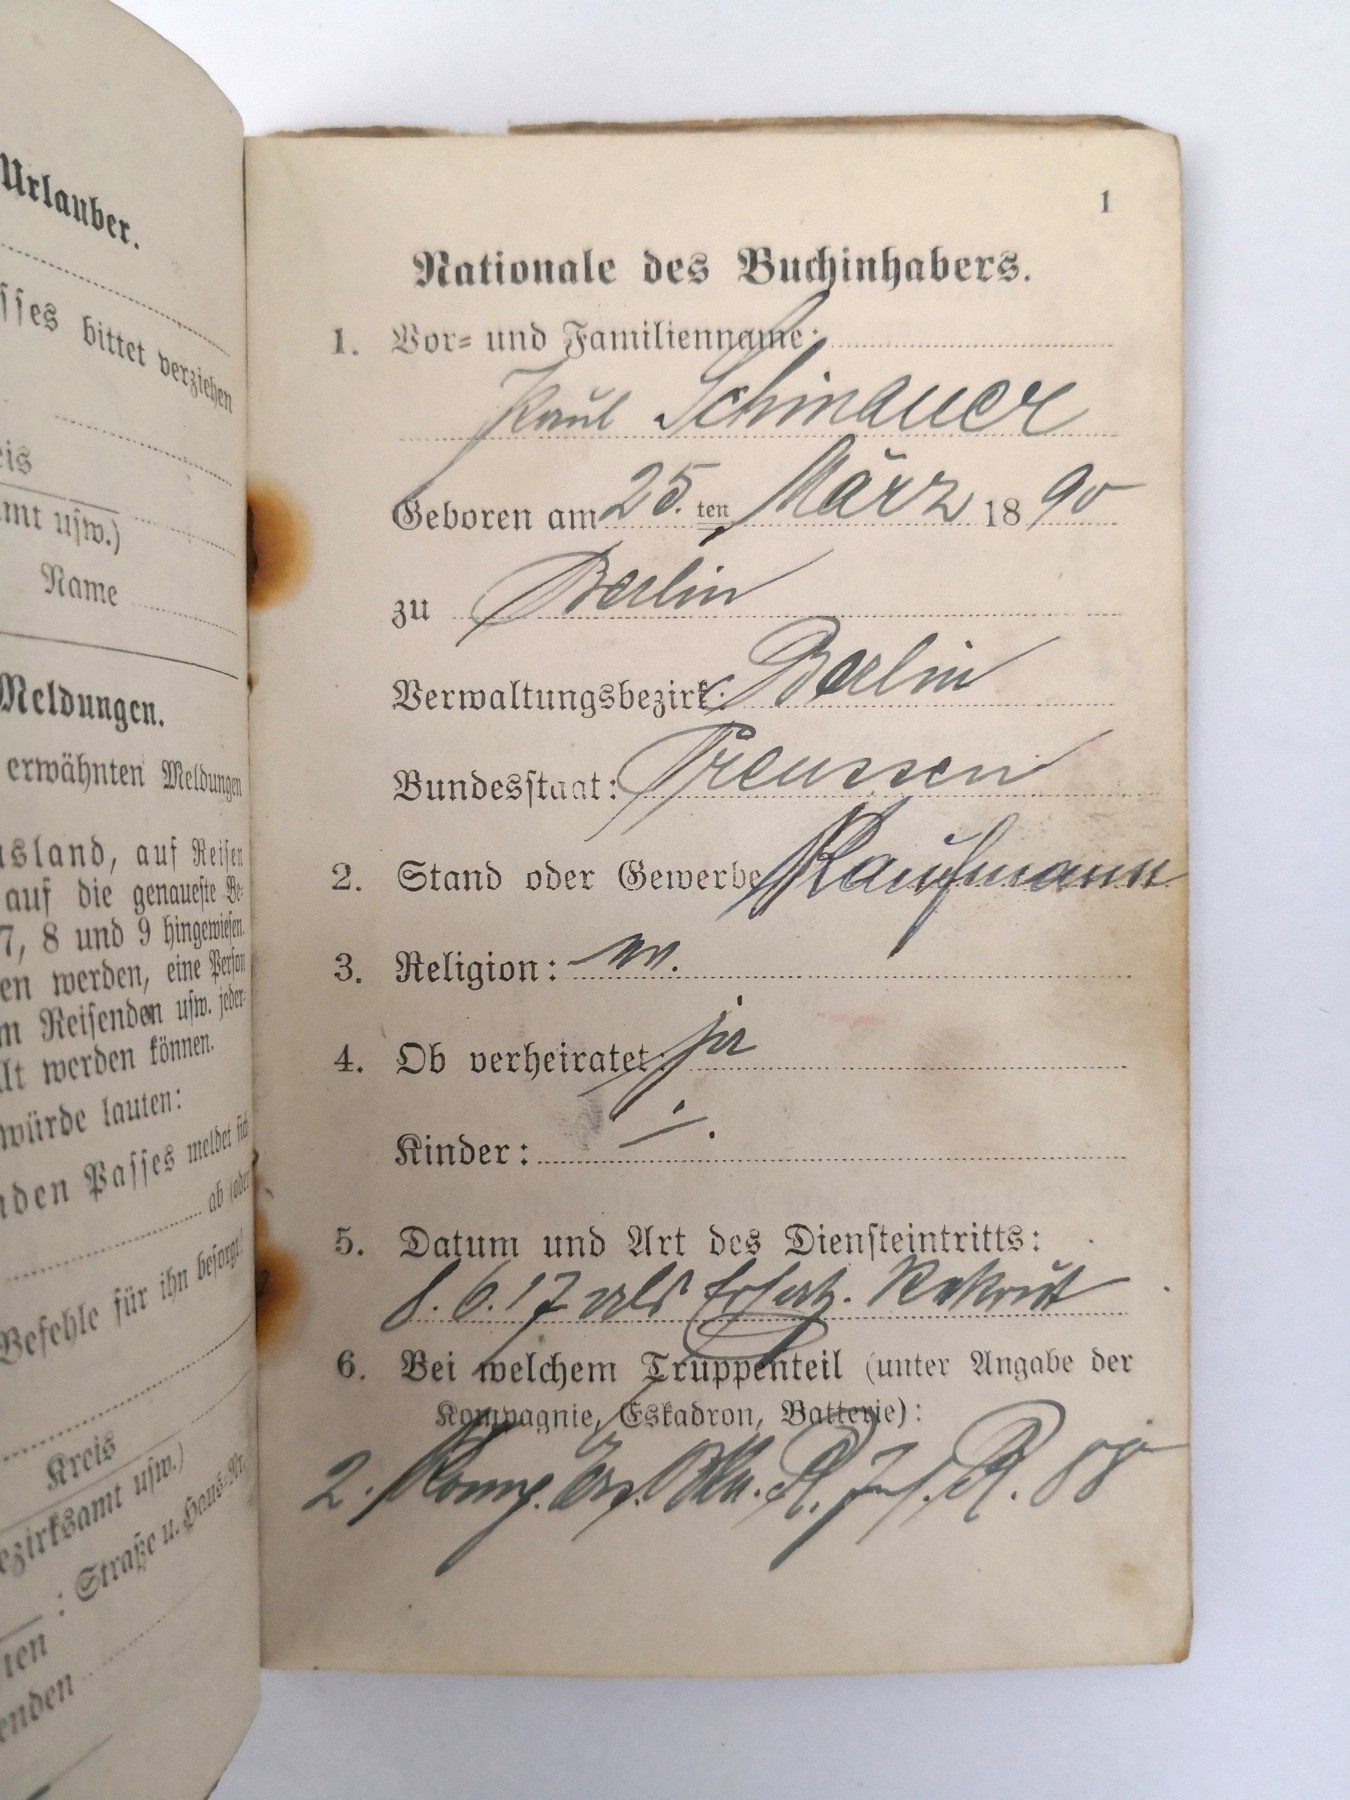 Urlauber.
sses bittet verziehen
eis
amt usw.)
Name
Meldungen.
erwähnten Meldungen
usland, auf Reisen
auf die genaueste Be-
7, 8 und 9 hingewiesen.
en werden, eine Person
m Reisenden usw. jeder-
llt werden können.
würde lauten:
nden Passes meldet sich
ab (oder
Befehle für ihn besorgt!
Kreis
ezirksamt usw.)
: Straße u. Haus-Nr.
enden
1
Nationale des Buchinhabers.
1. Vor- und Familienname:
Paul Schinauer
Geboren am 25. ten März 1890
zu Berlin
Verwaltungsbezirk: Berlin
Bundesstaat: Preussen
2. Stand oder Gewerbe Kaufmann
3. Religion: ev.
4. Ob verheiratet: ja
Kinder: –
5. Datum und Art des Diensteintritts:
8. 6. 17 als Ersatz. Rekrut
6. Bei welchem Truppenteil (unter Angabe der
Kompagnie, Eskadron, Batterie):
2. Komp. Ers. Btl. R. Inf. R. 88